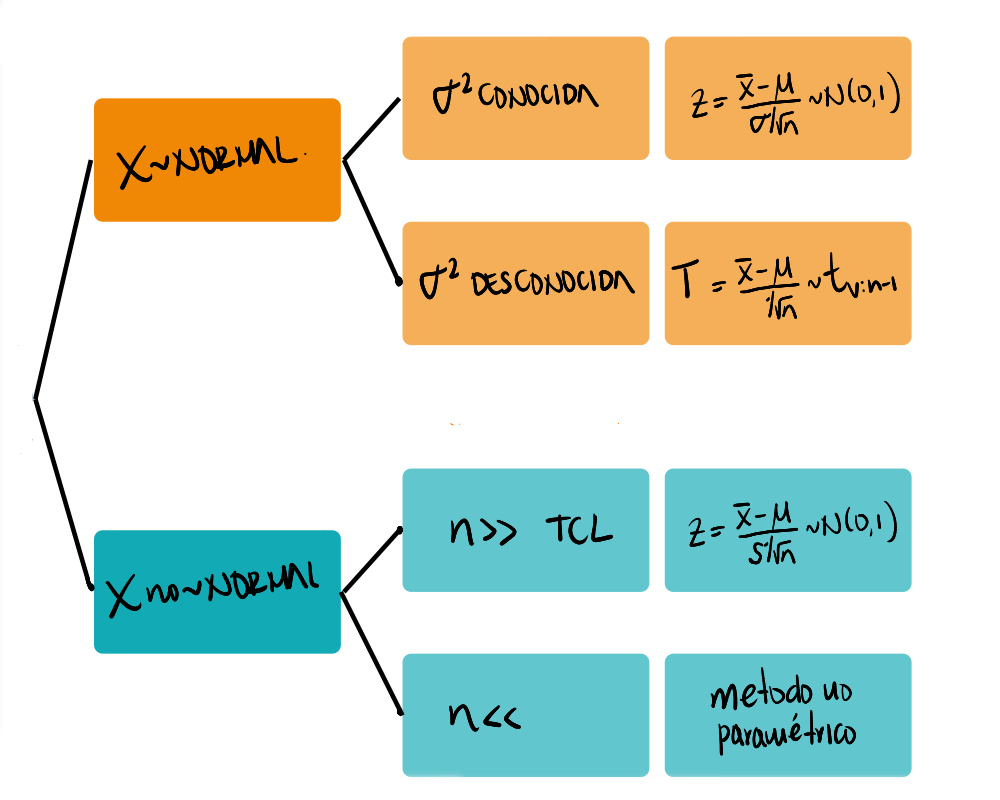 X~NORMAL.
σ² CONOCIDA
Z = x̄-μ / σ/√n ~N(0,1)
σ² DESCONOCIDA
T = x̄-μ / /√n ~ t v:n-1
X no~NORMAL
n>> TCL
Z = x̄-μ / S/√n ~N(0,1)
n<<
metodo no
paramétrico